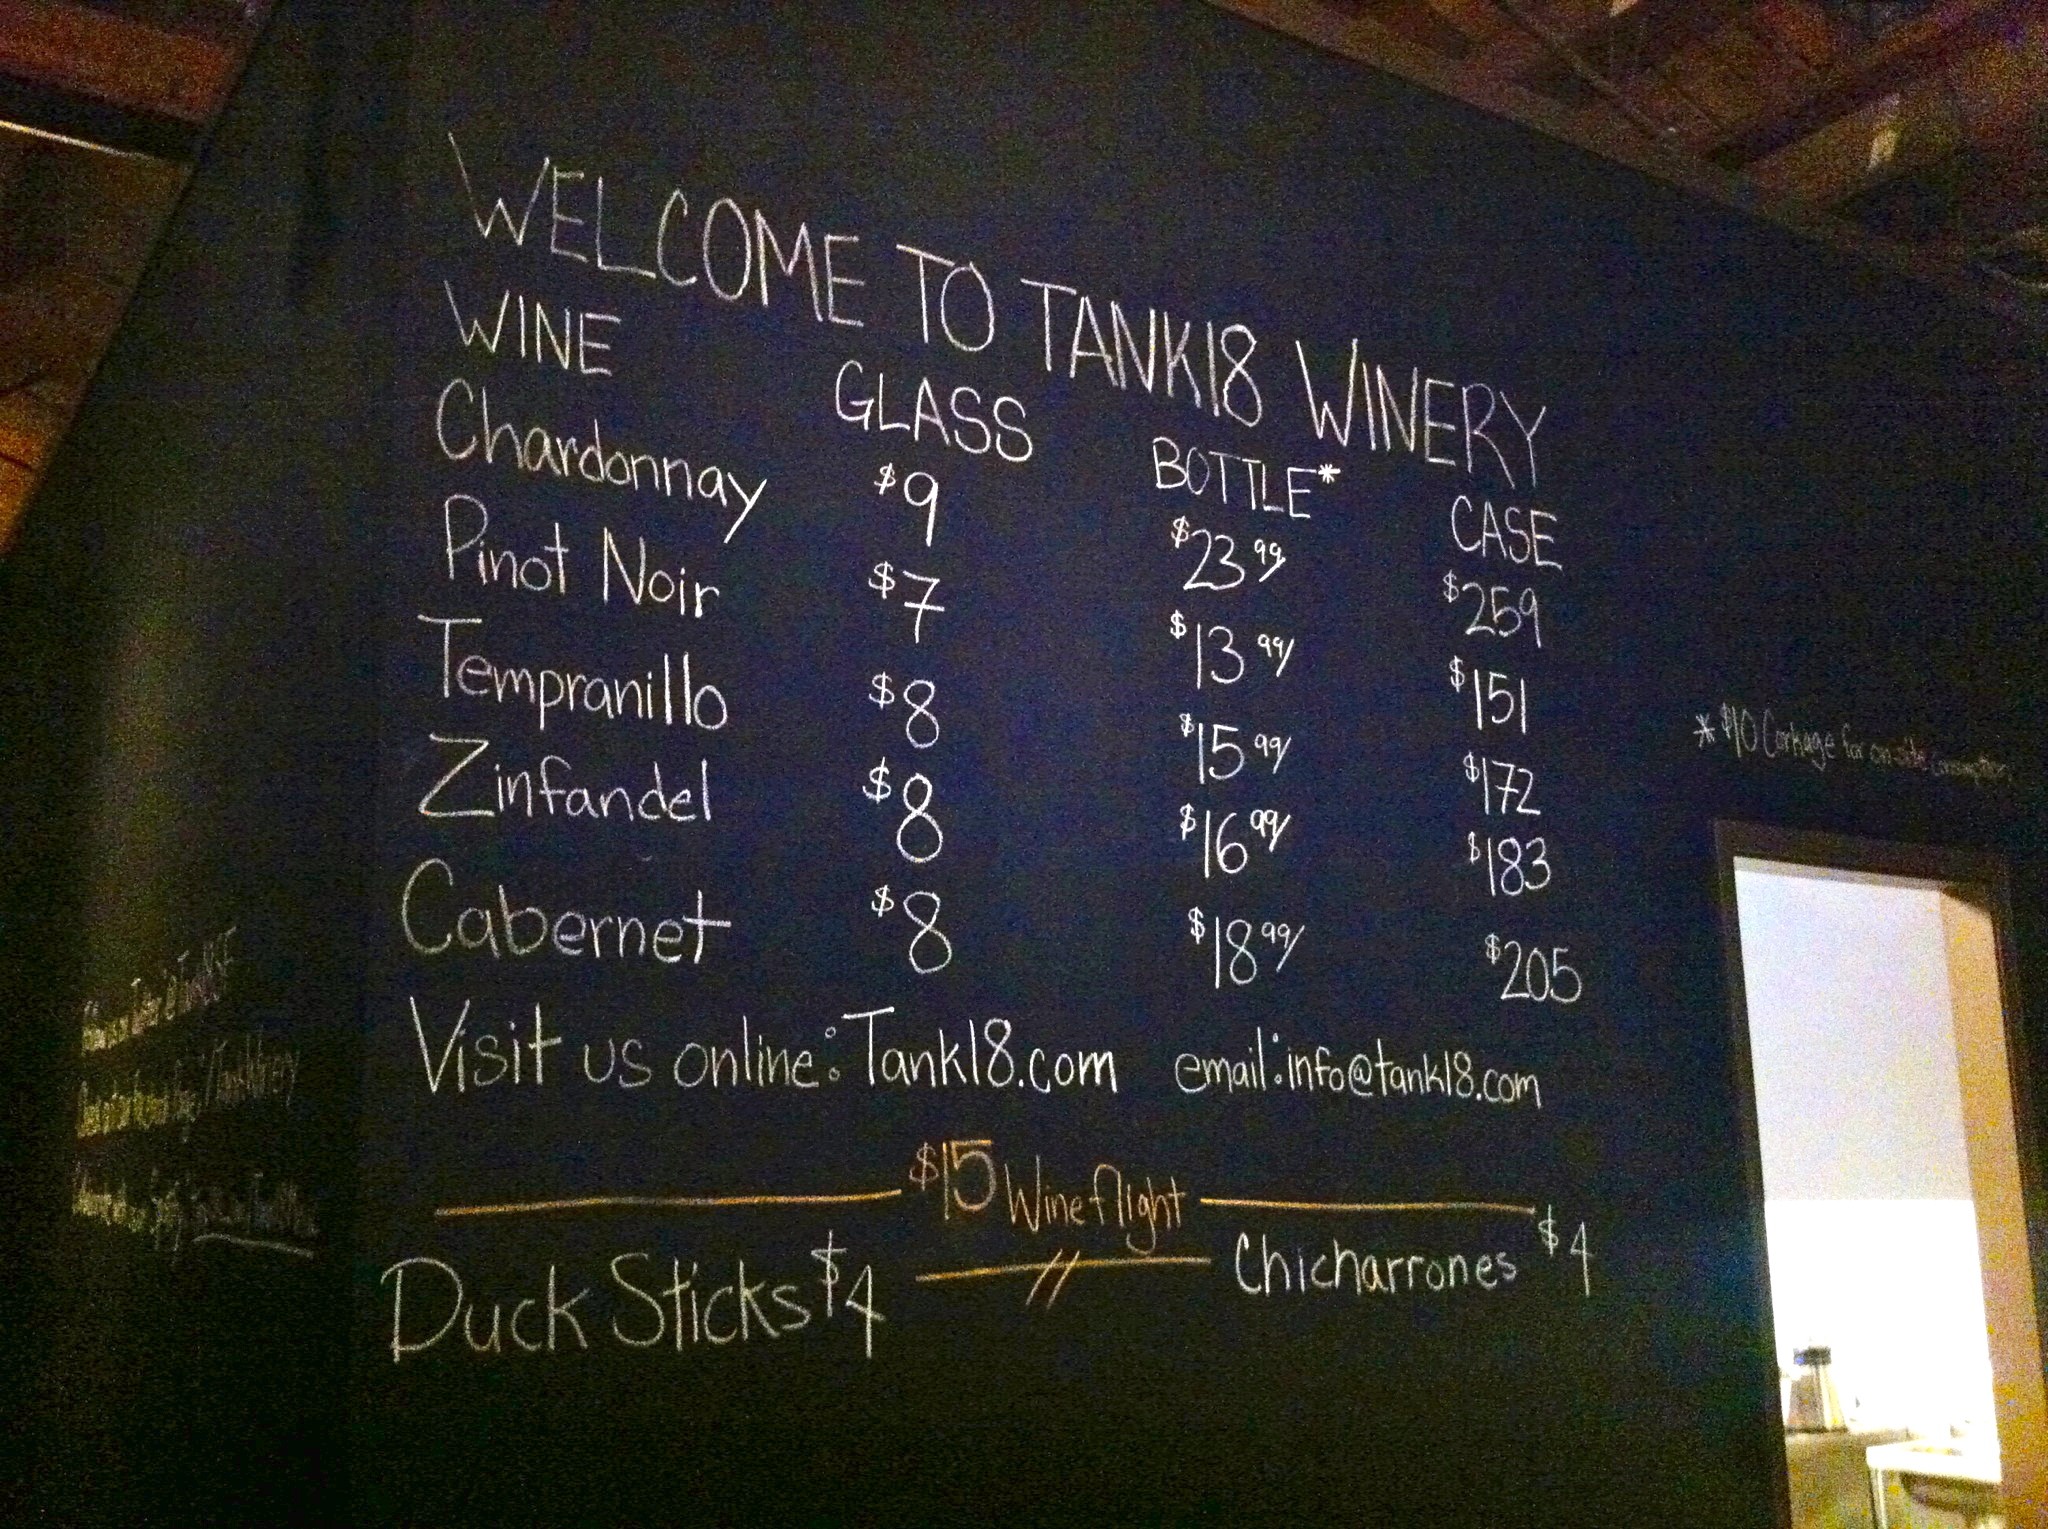 WELCOME TO TANK18 WINERY
WINE GLASS BOTTLE* CASE
Chardonnay $9 $23 99/ $259
Pinot Noir $7 $13 99/ $151
Tempranillo $8 $15 99/ $172
Zinfandel $8 $16 99/ $183
Cabernet $8 $18 99/ $205
Visit us online: Tank18.com email: info@tank18.com
$15 Wine flight
Duck Sticks $4 // Chicharrones $4
* $10 Corkage for on site consumption
/TankWinery